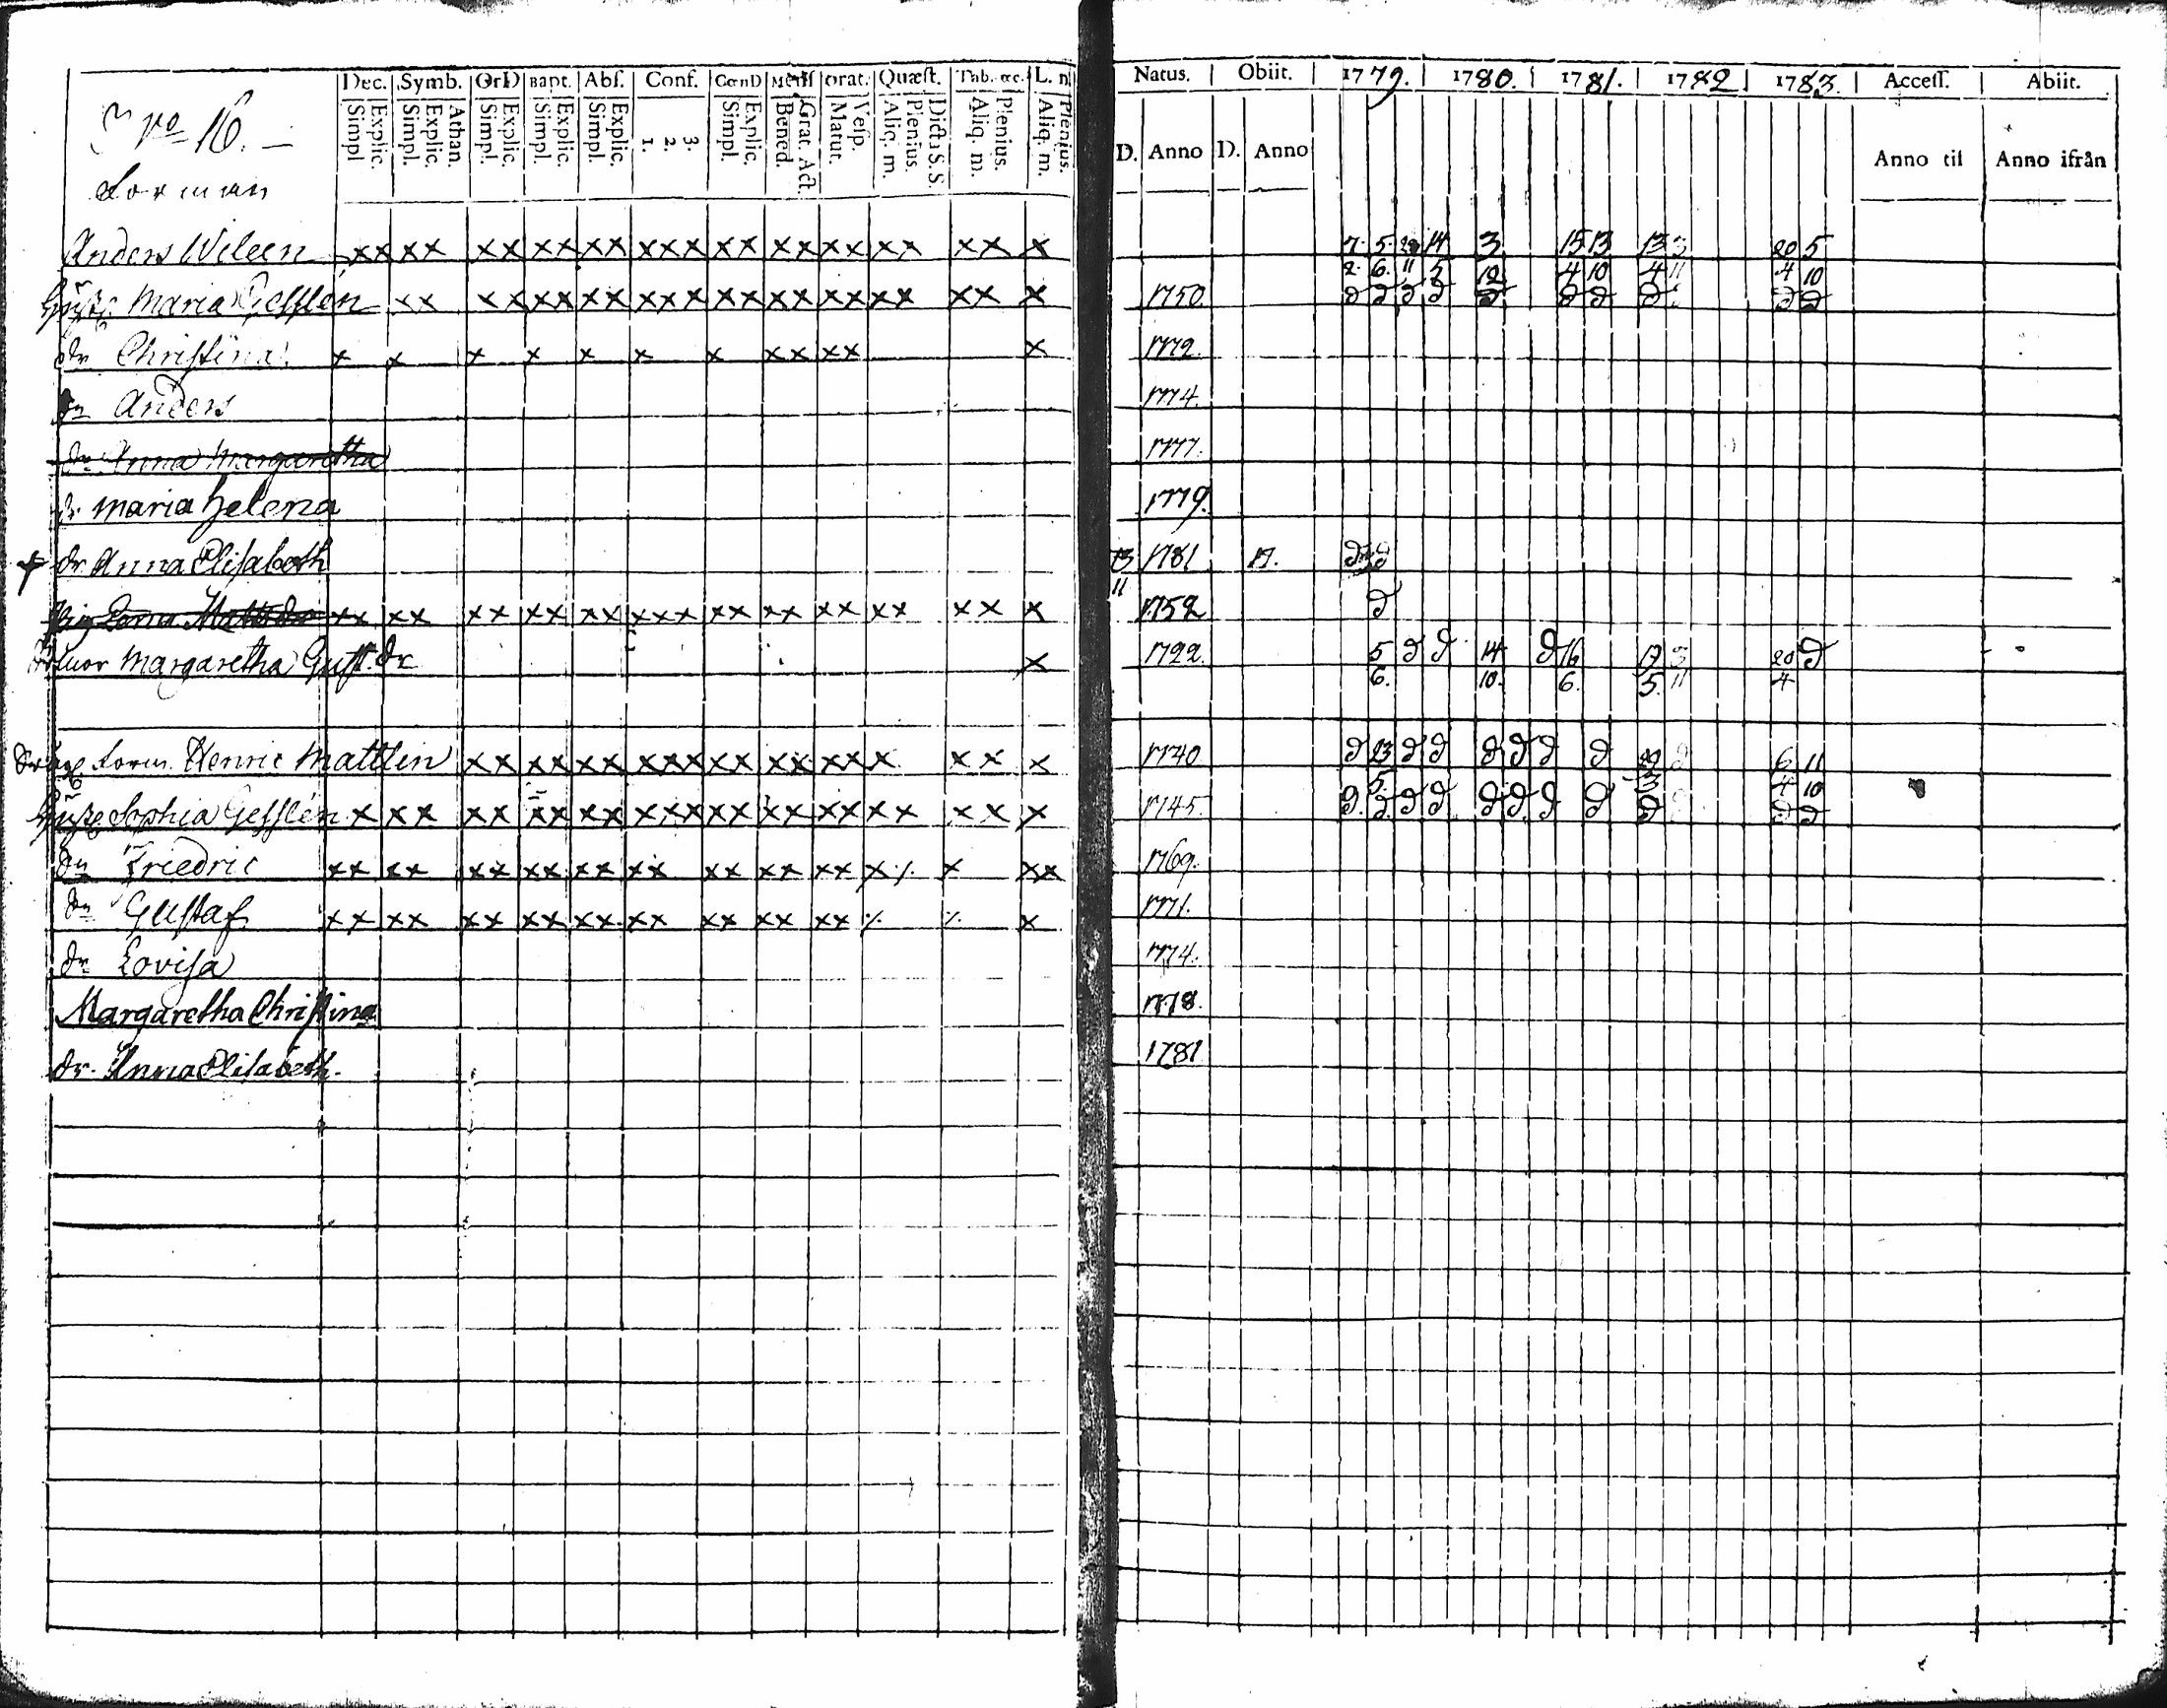 Dec. Symb. OrD Bapt. Abs. Conf. CœnD Menſ Orat. Quæst. Tab. œc. L. n
Simpl Explic. Simpl. Explic. Athan. Simpl. Explic. Simpl. Explic. Simpl. Explic. 1. 2. 3. Simpl. Explic. Bened. Grat. Act. Matut. Vesp. Aliq. m. Plenius. Dicta S.S. Aliq. m. Plenius. Aliq. m. Plenius.
Natus. Obiit. 1779. 1780. 1781. 1782 1783. Access. Abiit.
D. Anno D. Anno Anno til Anno ifrån
No 16.
Anders Wileen xx xx xx xx xx xxx xx xx xx xx xx x 7. 5. 14 3 15 13 13 3 20 5
2. 6. 11 5 12 4 10 4 11 4 10
Maria Gefflén xx xx xx xx xxx xx xx xx xx xx x 1750
dr Christina x x x x x x x xx xx x 1772.
Anders 1774.
dr Anna Margaretha 1777.
dr Maria Helena 1779.
dr Anna Elisabeth 13 1781
11
xx xx xx xx xx xxx xx xx xx xx xx x 1752
Margaretha Gust. dr x 1722. 5 14 16 3 20
6. 10. 6. 5 11 4
Henric Mattlin xx xx xx xxx xx xx xx x xx x 1740 23 6 11
5. 4 10
Sophia Gefflén x xx xx xx xx xxx xx xx xx xx xx x 1745.
dn Friedric xx xx xx xx xx xx xx xx xx x x xx 1769.
dn Gustaf xx xx xx xx xx xx xx xx xx x 1771.
dr Lovisa 1774.
Margaretha Christina 1778.
dr. Anna Elisabeth. 1781